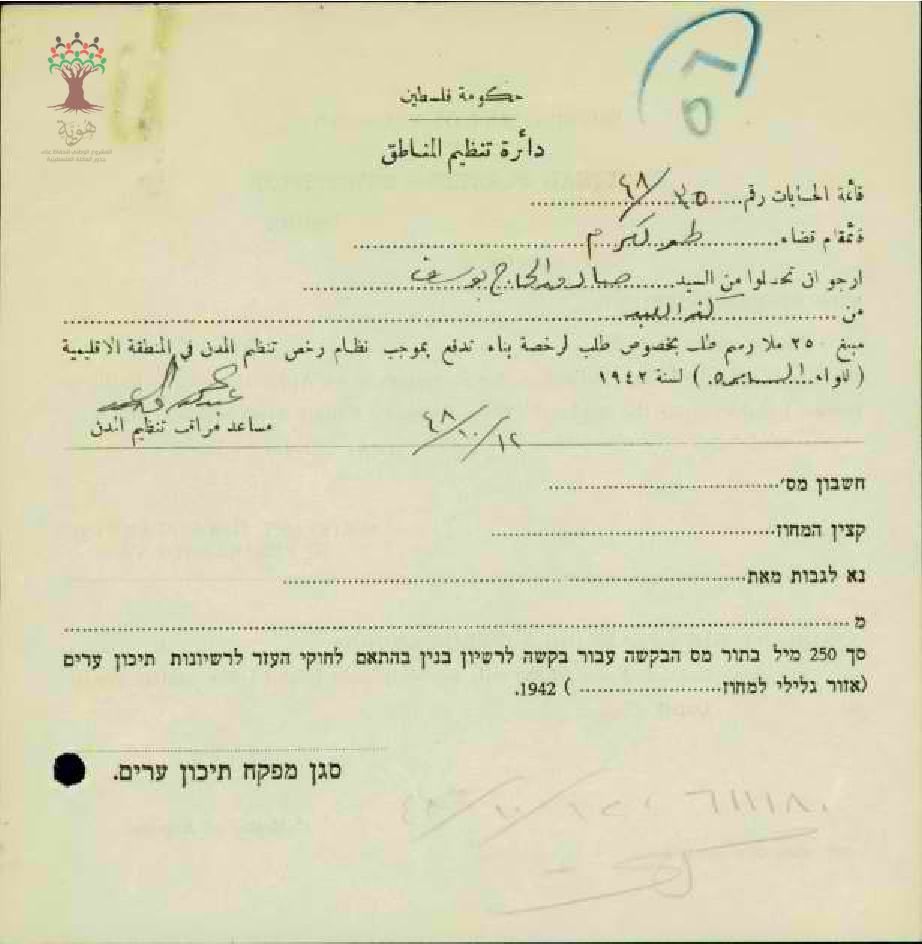 هوية
المشروع الوطني للحفاظ على
جذور العائلة الفلسطينية
٥٦
حكومة فلسطين
دائرة تنظيم المناطق
قائمة الحسابات رقم ٣٥/٤٨
قائمقام قضاء طولكرم
ارجو ان تحصلوا من السيد الحاج يوسف
من كفر اللبد
مبلغ ٢٥٠ ملا رسم طلب بخصوص طلب لرخصة بناء تدفع بموجب نظام رخص تنظيم المدن في المنطقة الاقليمية
(للواء السامرة) لسنة ١٩٤٢
مساعد مراقب تنظيم المدن
١٢/١٠/٤٨
חשבון מס׳
קצין המחוז
נא לגבות מאת
מ
סך 250 מיל בתור מס הבקשה עבור בקשה לרשיון בנין בהתאם לחוקי העזר לרשיונות תיכון ערים
(אזור גלילי למחוז ) 1942.
סגן מפקח תיכון ערים.